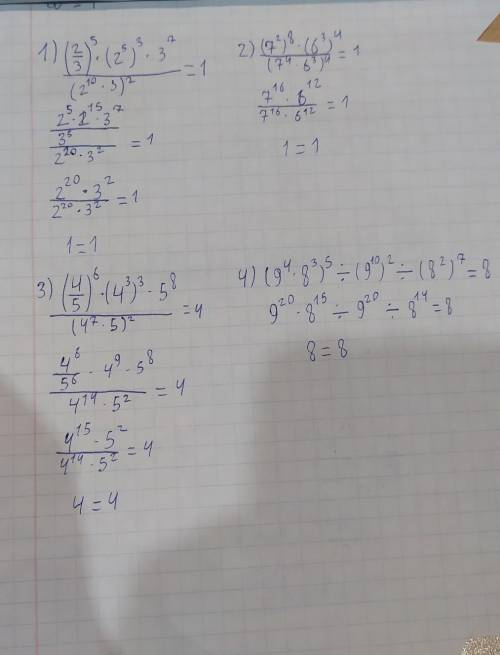 1) ((2/3)^5 · (2^5)^3 · 3^7)/((2^10 · 3)^2) = 1
(2^5 · 2^15 · 3^7 / 3^5)/(2^20 · 3^2) = 1
(2^20 · 3^2)/(2^20 · 3^2) = 1
1 = 1
2) ((7^2)^8 · (6^3)^4)/((7^4 · 6^3)^4) = 1
(7^16 · 6^12)/(7^16 · 6^12) = 1
1 = 1
3) ((4/5)^6 · (4^3)^3 · 5^8)/((4^7 · 5)^2) = 4
(4^6/5^6 · 4^9 · 5^8)/(4^14 · 5^2) = 4
(4^15 · 5^2)/(4^14 · 5^2) = 4
4 = 4
4) (9^4 · 8^3)^5 ÷ (9^10)^2 ÷ (8^2)^7 = 8
9^20 · 8^15 ÷ 9^20 ÷ 8^14 = 8
8 = 8